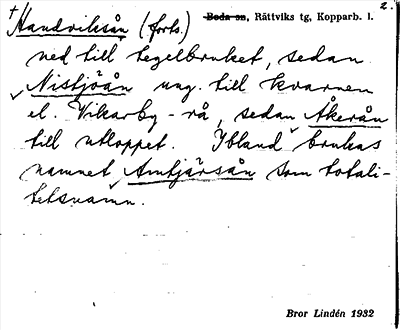 † Handviksån (forts.) Boda sn, Rättviks tg, Kopparb. l. 2.
ned till tegelbruket, sedan
Nistjöån ung. till kvarnen
el. Vikarby-rå, sedan Åkerån
till utloppet. Ibland brukas
namnet Amtjärsån som totali-
tetsnamn.
Bror Lindén 1932